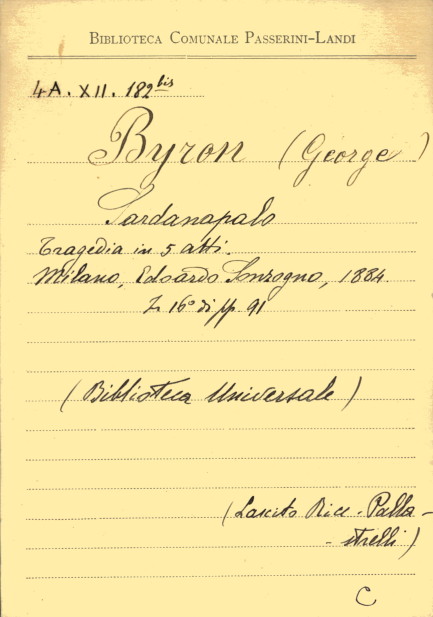 BIBLIOTECA COMUNALE PASSERINI-LANDI
4A. XII. 182 bis
Byron (George)
Sardanapalo
Tragedia in 5 atti.
Milano, Edoardo Sonzogno, 1884.
In 16° di pp. 91
(Biblioteca Universale)
(Lascito Ricc. Palla-
-strelli)
C